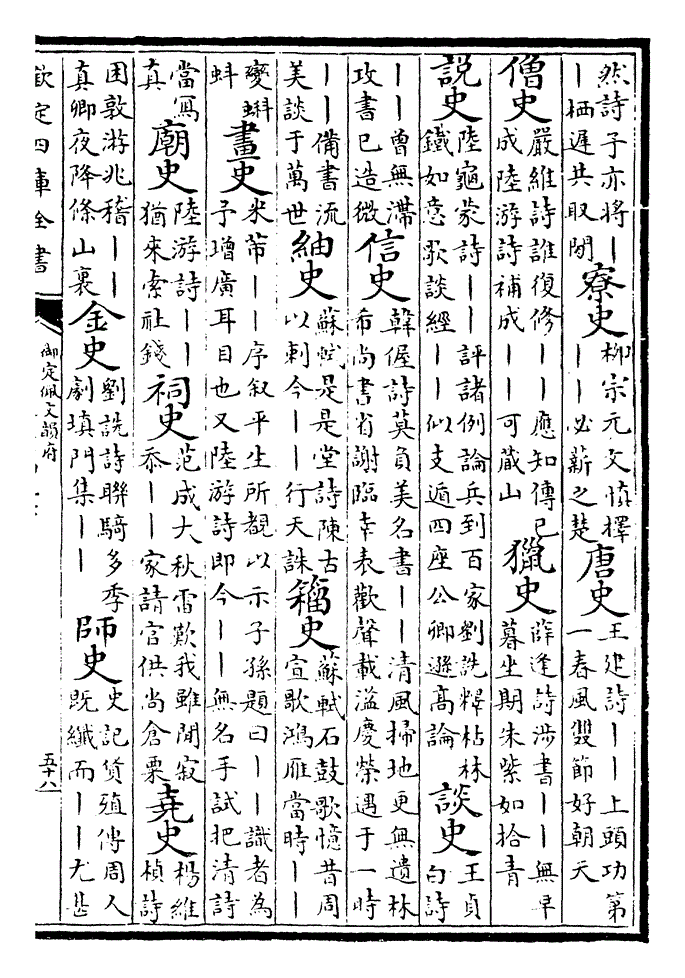 然詩子亦將丨
丨栖遲共取閒
寮史
柳宗元文慎擇
丨丨必薪之楚
唐史
王建詩丨丨上頭功第
一春風雙節好朝天
僧史
嚴維詩誰復修丨丨應知傳已
成陸游詩補成丨丨可藏山
獵史
薛逢詩涉書丨丨無早
暮坐期朱紫如拾青
説史
陸龜蒙詩丨丨評諸例論兵到百家劉詵釋枯林
鐵如意歌談經丨丨似支遁四座公卿遜高論
談史
王貞
白詩
丨丨曾無滯
攻書已造微
信史
韓偓詩莫負美名書丨丨清風掃地更無遺林
希尚書省謝臨幸表歡聲載溢慶榮遇于一時
丨丨備書流
美談于萬世
紬史
蘇軾是是堂詩陳古
以刺今丨丨行天誅
籀史
蘇軾石鼓歌憶昔周
宣歌鴻雁當時丨丨
變蝌
蚪
畫史
米芾丨丨序叙平生所覩以示子孫題曰丨丨識者為
子增廣耳目也又陸游詩即今丨丨無名手試把清詩
當寫
真
廟史
陸游詩丨丨
猶來索社錢
祠史
范成大秋雷歎我雖閒寂
忝丨丨家請官供尚倉粟
堯史
楊維
楨詩
困敦游兆稽丨丨
真卿夜降條山裏
金史
劉詵詩聯騎多季
劇瑱門集丨丨
師史
史記貨殖傳周人
既纖而丨丨尤甚
欽定四庫全書
御定佩文韻府
五十八